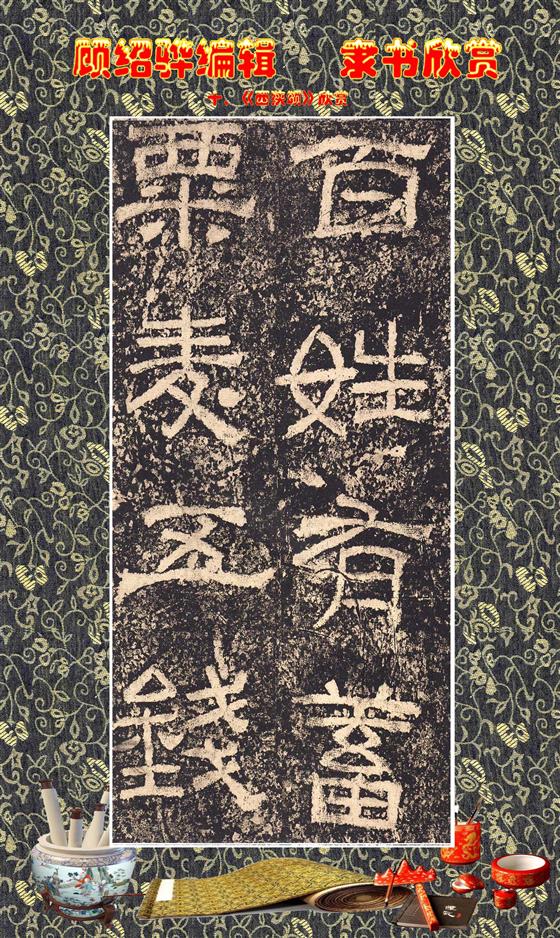 顾绍骅编辑 隶书欣赏
十、《西狭颂》欣赏
百姓有蓄
粟麦五錢